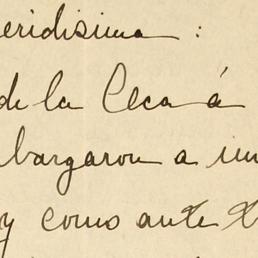 eridisima :
de la Ceca á
bargaron a un
y como ante